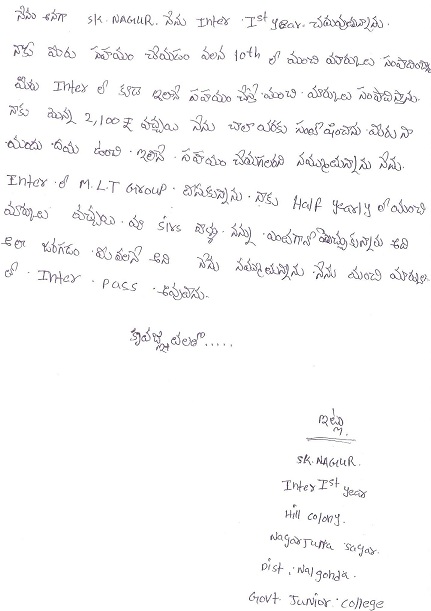 నేను అనగా SK. NAGUR. నేను Inter Ist year. చదువుతున్నాను.
నాకు మీరు సహాయం చేయడం వలన 10th లో మంచి మార్కులు
మీరు Inter లో కూడ ఇలానే సహాయం చేస్తే మంచి మార్కులు
నాకు మొన్న 2,100 ₹ వచ్చాయి నేను చాలా వరకు మీరు నా
యందు దయ ఉంచి ఇలానే సహాయం నమ్ముతున్నాను నేను.
Inter లో M.L.T Group తీసుకున్నాను. నాకు Half yearly లో మంచి
మార్కులు వచ్చాయి. మా sirs నన్ను ఎంతగానో మెచ్చుకున్నారు అది
అలా జరగడం మీ వలనే అది నేను నమ్ముతున్నాను. నేను మంచి
లో Inter pass అవుతాను.
కృతజ్ఞతలతో.....
ఇట్లు
SK. NAGUR.
Inter Ist year
Hill colony.
Nagarjuna sagar.
Dist : Nalgonda.
Govt Junior college